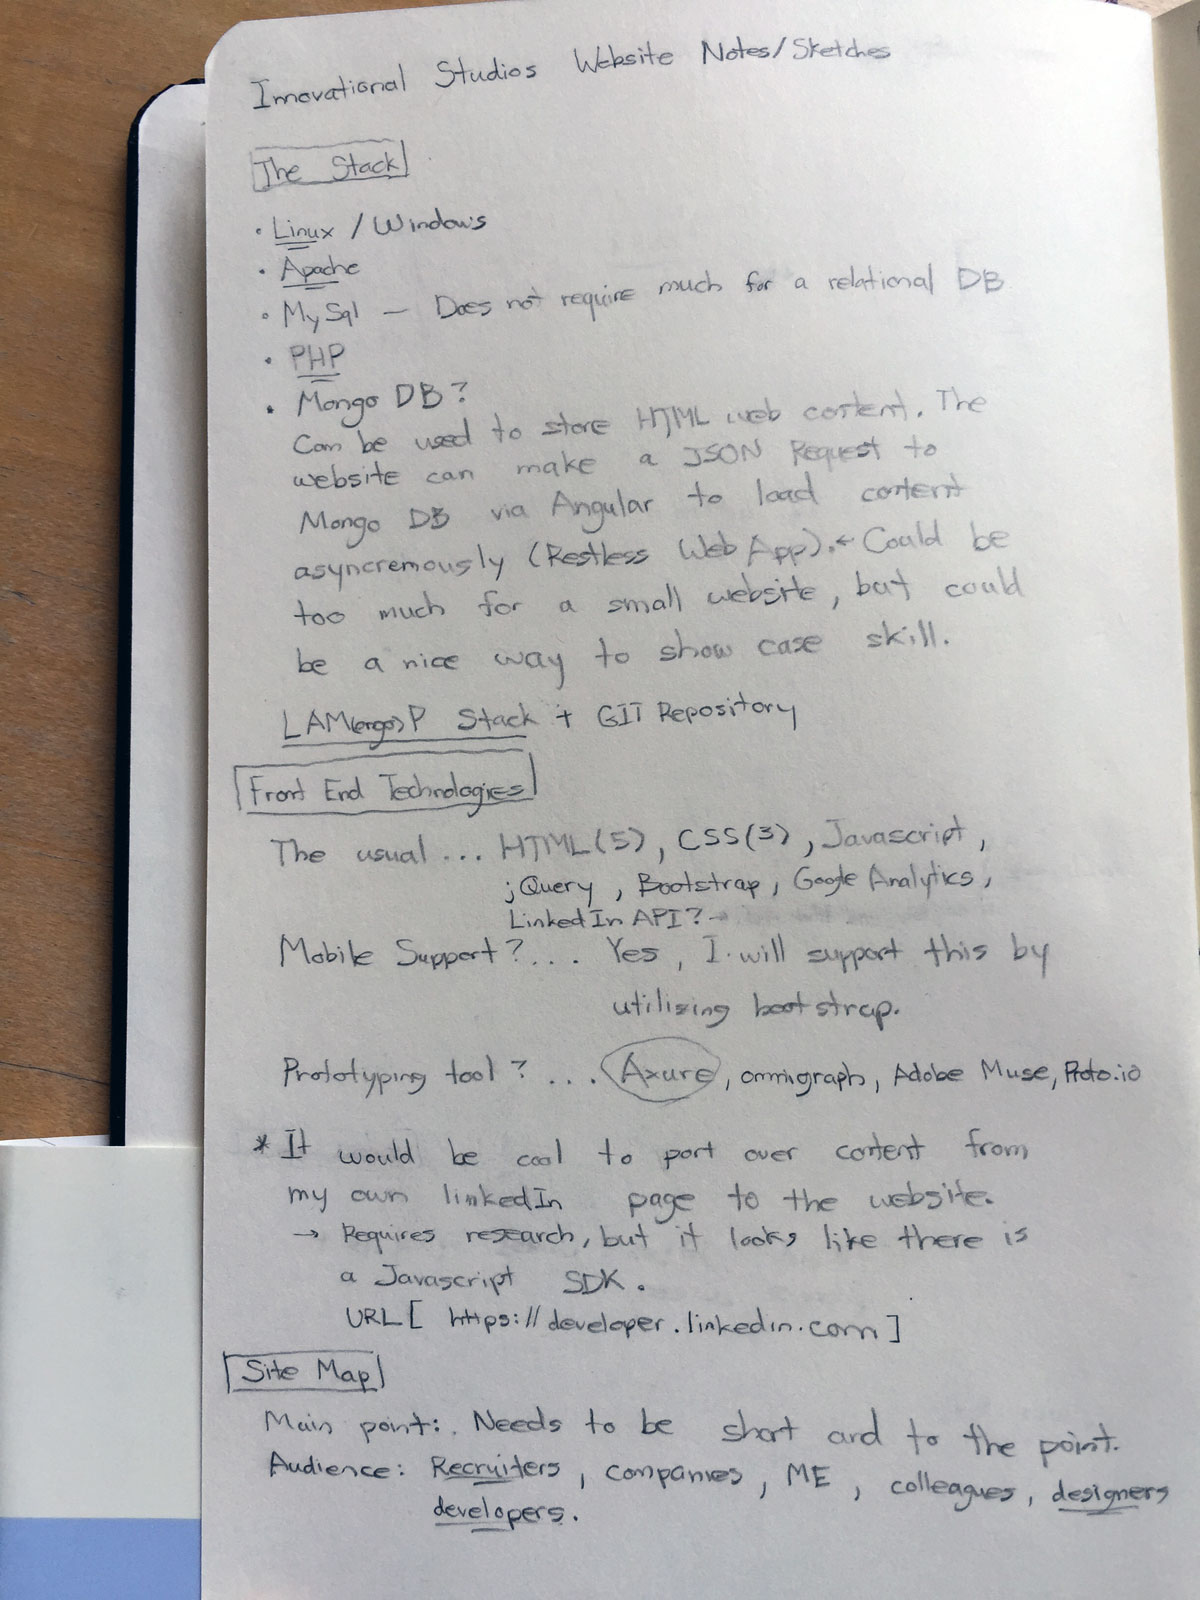 Innovational Studios Website Notes/Sketches
The Stack
• Linux / Windows
• Apache
• MySql — Does not require much for a relational DB
• PHP
• Mongo DB?
Can be used to store HTML web content. The
website can make a JSON Request to
Mongo DB via Angular to load content
asyncremously (Restless Web App). ← Could be
too much for a small website, but could
be a nice way to show case skill.
LAM(ongo)P Stack + GIT Repository
Front End Technologies
The usual ... HTML(5), CSS(3), Javascript,
jQuery, Bootstrap, Google Analytics,
LinkedIn API? →
Mobile Support?... Yes, I will support this by
utilizing bootstrap.
Prototyping tool? ... Axure, omnigraph, Adobe Muse, Proto.io
* It would be cool to port over content from
my own linkedIn page to the website.
→ Requires research, but it looks like there is
a Javascript SDK.
URL [ https://developer.linkedin.com ]
Site Map
Main point:. Needs to be short and to the point.
Audience: Recruiters, companies, ME, colleagues, designers
developers.